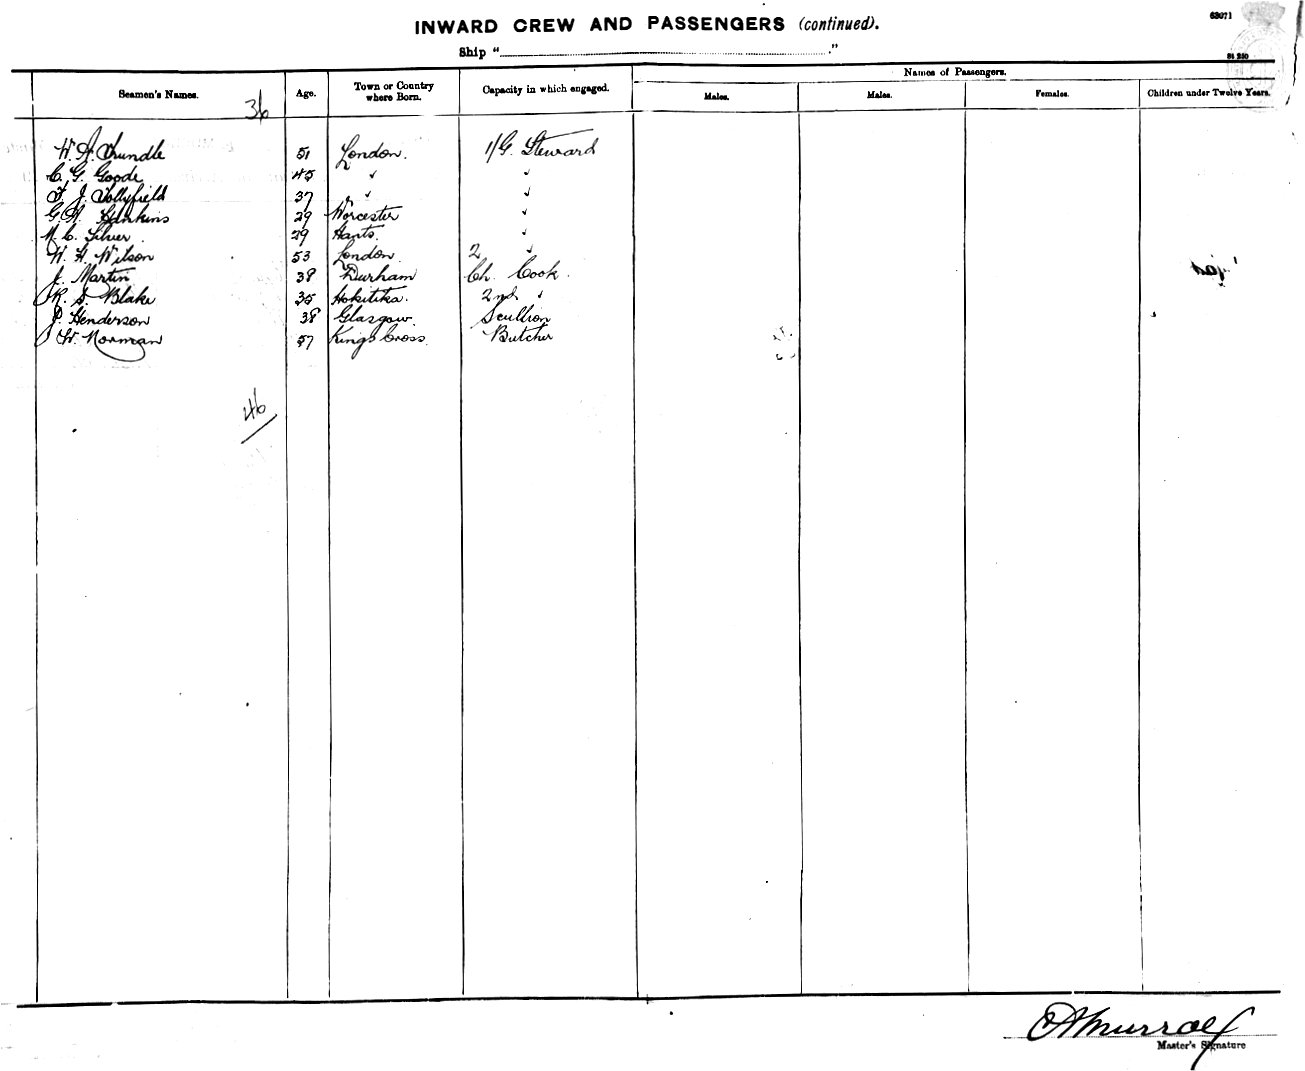 63071
INWARD CREW AND PASSENGERS (continued).
Ship " ."
Seamen's Names. Age. Town or Country where Born. Capacity in which engaged. Names of Passengers.
Males. Males. Females. Children under Twelve Years.
36
W. A. Trundle 51 London. 1/G. Steward
C. G. Goode 45 " "
F. J. Tollyfield 37 " "
G. A. Hankins 29 Worcester "
M. C. Silver 29 Hants. "
W. H. Wilson 53 London. 2 "
J. Martin 38 Durham Ch. Cook.
R. S. Blake 35 Hokitika. 2nd "
J. Henderson 38 Glasgow. Scullion
W. Norman 57 Kings Cross. Butcher
46
Murray
Master's Signature